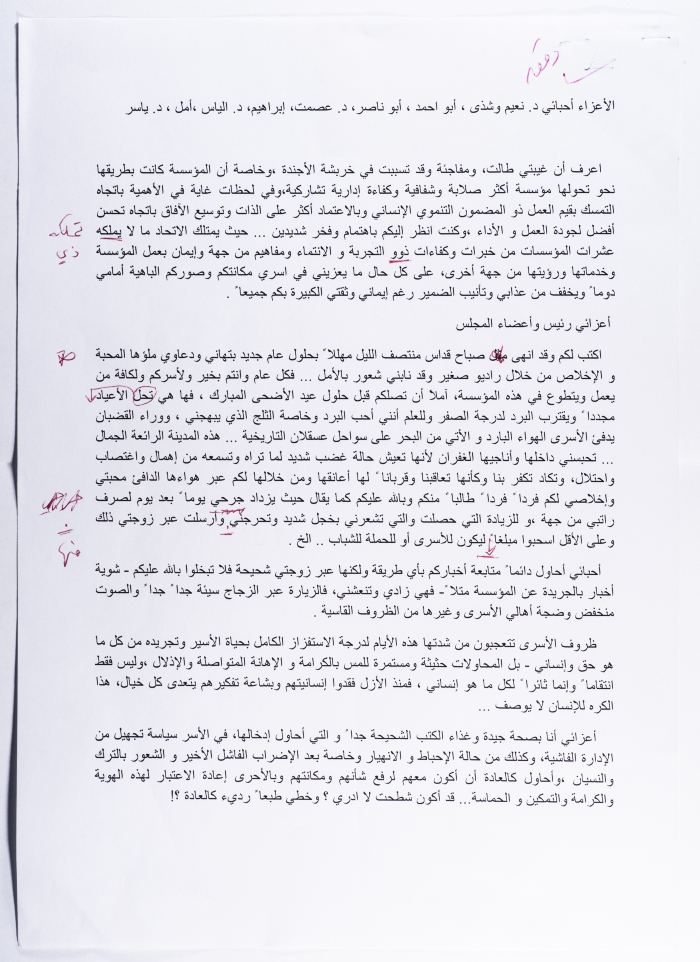 الأعزاء أحبائي د. نعيم وشذى ، أبو احمد ، أبو ناصر، د. عصمت، إبراهيم، د. الياس ،أمل ، د. ياسر
اعرف أن غيبتي طالت، ومفاجئة وقد تسببت في خربشة الأجندة ،وخاصة أن المؤسسة كانت بطريقها
نحو تحولها مؤسسة أكثر صلابة وشفافية وكفاءة إدارية تشاركية،وفي لحظات غاية في الأهمية باتجاه
التمسك بقيم العمل ذو المضمون التنموي الإنساني وبالاعتماد أكثر على الذات وتوسيع الأفاق باتجاه تحسن
أفضل لجودة العمل و الأداء ،وكنت انظر إليكم باهتمام وفخر شديدين ... حيث يمتلك الاتحاد ما لا يملكه
تملكه
عشرات المؤسسات من خبرات وكفاءات ذوو التجربة و الانتماء ومفاهيم من جهة وإيمان بعمل المؤسسة
ذي
وخدماتها ورؤيتها من جهة أخرى، على كل حال ما يعزيني في اسري مكانتكم وصوركم الباهية أمامي
دوماً ويخفف من عذابي وتأنيب الضمير رغم إيماني وثقتي الكبيرة بكم جميعاً .
أعزائي رئيس وأعضاء المجلس
اكتب لكم وقد انهى صباح قداس منتصف الليل مهللاً بحلول عام جديد بتهاني ودعاوي ملؤها المحبة
و الإخلاص من خلال راديو صغير وقد نابني شعور بالأمل ... فكل عام وانتم بخير ولأسركم ولكافة من
يعمل ويتطوع في هذه المؤسسة، آملا أن تصلكم قبل حلول عيد الأضحى المبارك ، فها هي تحل الأعياد
مجدداً ويقترب البرد لدرجة الصفر وللعلم أنني أحب البرد وخاصة الثلج الذي يبهجني ، ووراء القضبان
يدفئ الأسرى الهواء البارد و الأتي من البحر على سواحل عسقلان التاريخية ... هذه المدينة الرائعة الجمال
... تحبسني داخلها وأناجيها الغفران لأنها تعيش حالة غضب شديد لما تراه وتسمعه من إهمال واغتصاب
واحتلال، وتكاد تكفر بنا وكأنها تعاقبنا وقرباناً لها أعانقها ومن خلالها لكم عبر هواءها الدافئ محبتي
وإخلاصي لكم فرداً فرداً طالباً منكم وبالله عليكم كما يقال حيث يزداد جرحي يوماً بعد يوم لصرف
راتبي من جهة ،و للزيادة التي حصلت والتي تشعرني بخجل شديد وتحرجني وأرسلت عبر زوجتي ذلك
وعلى الأقل اسحبوا مبلغاً ليكون للأسرى أو للحملة للشباب .. الخ .
منها
أحبائي أحاول دائماً متابعة أخباركم بأي طريقة ولكنها عبر زوجتي شحيحة فلا تبخلوا بالله عليكم - شوية
أخبار بالجريدة عن المؤسسة مثلاً- فهي زادي وتنعشني، فالزيارة عبر الزجاج سيئة جداً جداً والصوت
منخفض وضجة أهالي الأسرى وغيرها من الظروف القاسية .
ظروف الأسرى تتعجبون من شدتها هذه الأيام لدرجة الاستفزاز الكامل بحياة الأسير وتجريده من كل ما
هو حق وإنساني - بل المحاولات حثيثة ومستمرة للمس بالكرامة و الإهانة المتواصلة والإذلال ،وليس فقط
انتقاماً وإنما ثائراً لكل ما هو إنساني ، فمنذ الأزل فقدوا إنسانيتهم وبشاعة تفكيرهم يتعدى كل خيال، هذا
الكره للإنسان لا يوصف ...
أعزائي أنا بصحة جيدة وغذاء الكتب الشحيحة جداً و التي أحاول إدخالها، في الأسر سياسة تجهيل من
الإدارة الفاشية، وكذلك من حالة الإحباط و الانهيار وخاصة بعد الإضراب الفاشل الأخير و الشعور بالترك
والنسيان ،وأحاول كالعادة أن أكون معهم لرفع شأنهم ومكانتهم وبالأحرى إعادة الاعتبار لهذه الهوية
والكرامة والتمكين و الحماسة... قد أكون شطحت لا ادري ؟ وخطي طبعاً رديء كالعادة ؟!